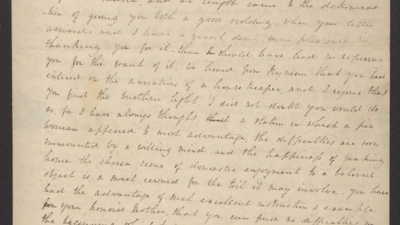 and at length came to the determination
-tion of giving you both a good scolding when your letter
arrived and I have a great deal more pleasure in
thanking you for it, than I should have had in scolding
you for the want of it. We heard from that you had
entered on the avocations of a housekeeper, and I rejoice that
you find the burthen light. I did not doubt you would do
so for I have always thought that a station in which a
woman appeared to most advantage, the difficulties are soon
surmounted by a willing mind and the happiness of making
home the chosen scene of domestic enjoyment to a beloved
object is a sweet reward for the toil it may involve. You have
had the advantage of such excellent instruction & example
from your honor'd Mother, that you can find no difficulties in
the beginning